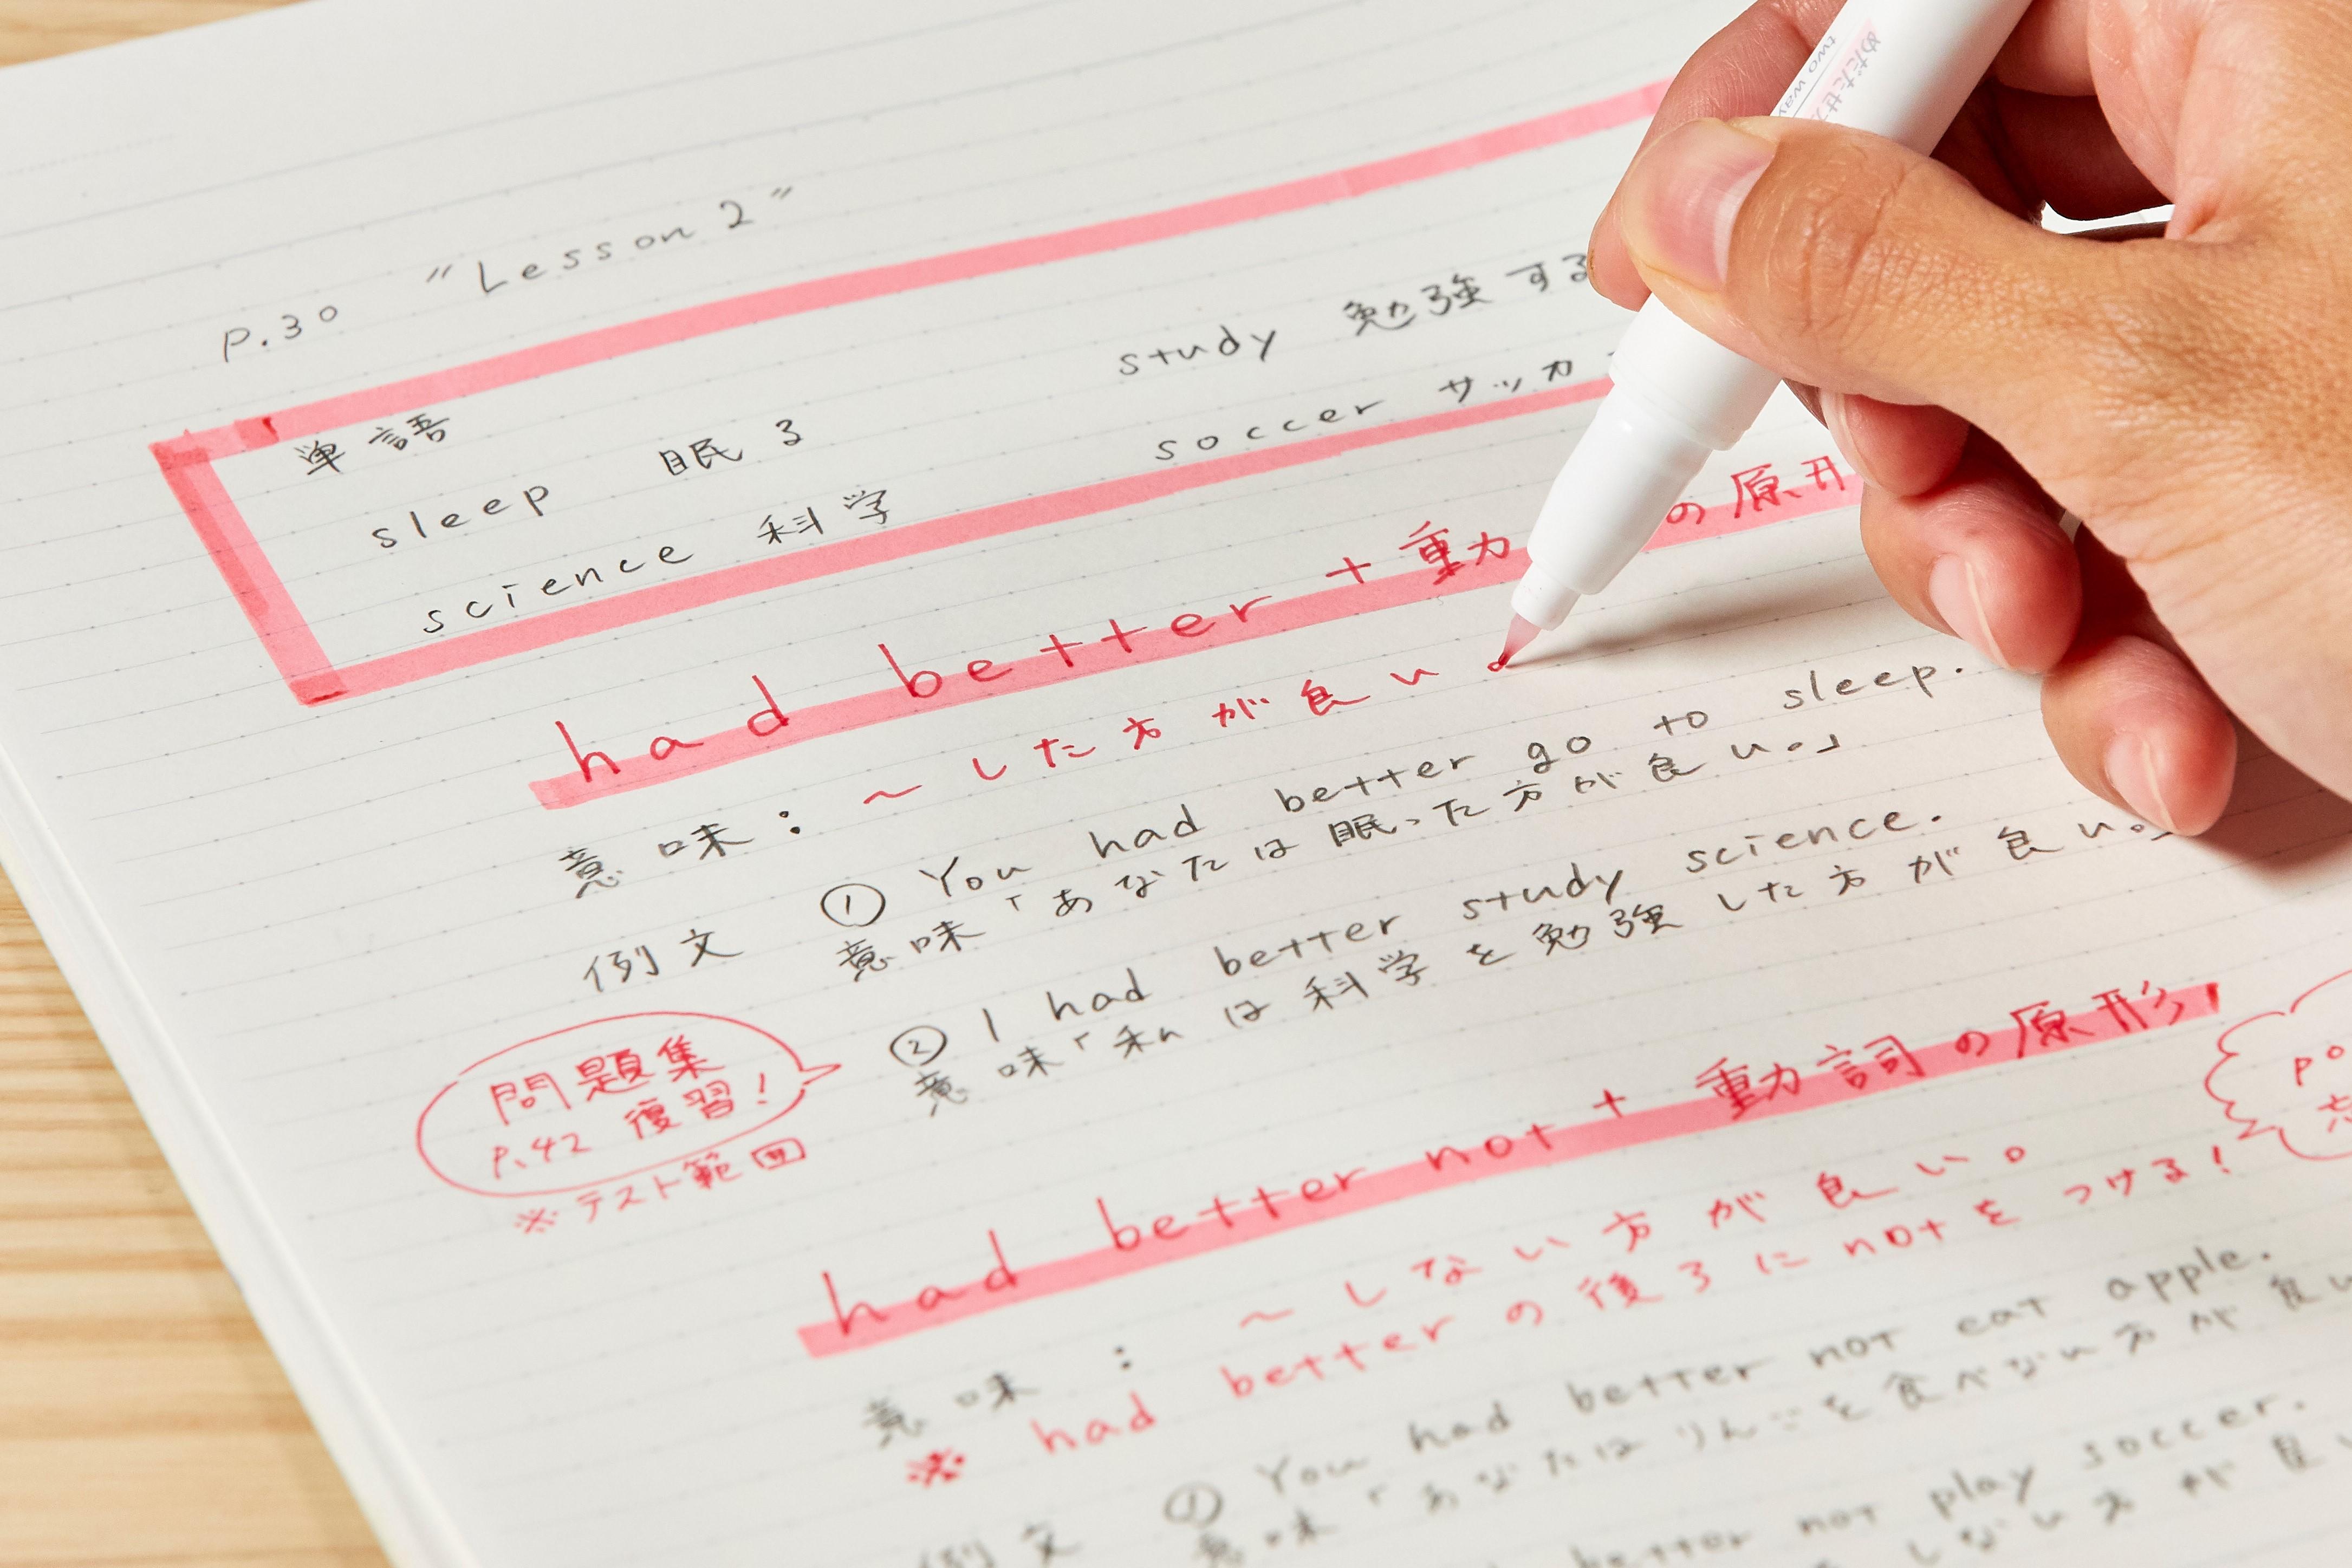 P.30 "Lesson 2"
単語
sleep 眠る study 勉強する
science 科学 soccer サッカ
had better + 動 の原形
意味：～した方が良い。
例文 ① You had better go to sleep.
意味「あなたは眠った方が良い。」
② I had better study science.
意味「私は科学を勉強した方が良い。」
問題集
P.42 復習！
※テスト範囲
had better not + 動詞の原形
意味：～しない方が良い。
※ had better の後ろに not をつける！
例文 ① You had better not eat apple.
意味「あなたはりんごを食べない方が良い
better not play soccer.
しない方が良い
two way